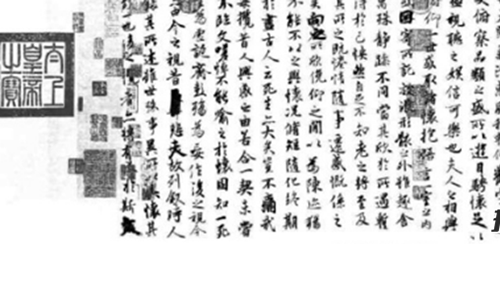 俯察品類之盛所以遊目騁懷足以
極視聽之娛信可樂也夫人之相與
俯仰一世或取諸懷抱悟言一室之內
因寄所託放浪形骸之外雖趣舍
萬殊靜躁不同當其欣於所遇暫
得於己怏然自足不知老之將至及
其所之既惓情隨事遷感慨係之
矣向之所欣俛仰之閒以為陳迹
不能不以之興懷況脩短隨化終期
於盡古人云死生亦大矣豈不痛哉
每攬昔人興感之由若合一契未嘗
不臨文嗟悼不能喻之於懷固知一死
為虛誕齊彭殤為妄作後之視今
今之視昔悲夫故列敘時人
錄其所述雖世殊事異所以興懷其
致一也後之攬者亦將有感於斯文
太上皇帝之寶